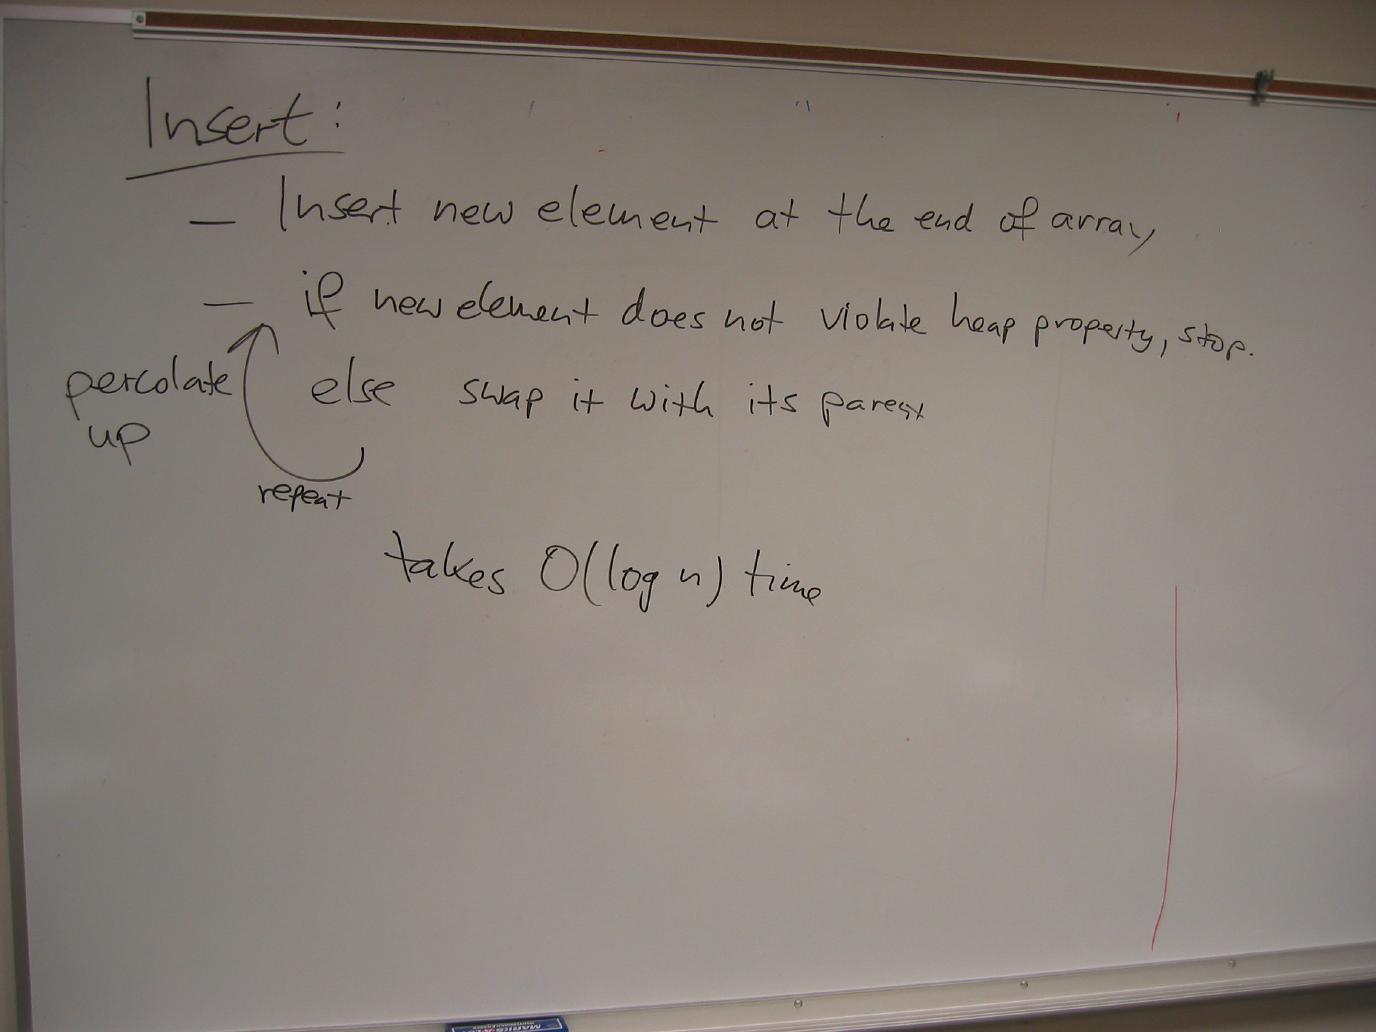 Insert:
— Insert new element at the end of array
— if new element does not violate heap property, stop.
percolate
up
else swap it with its parent
repeat
takes O(log n) time